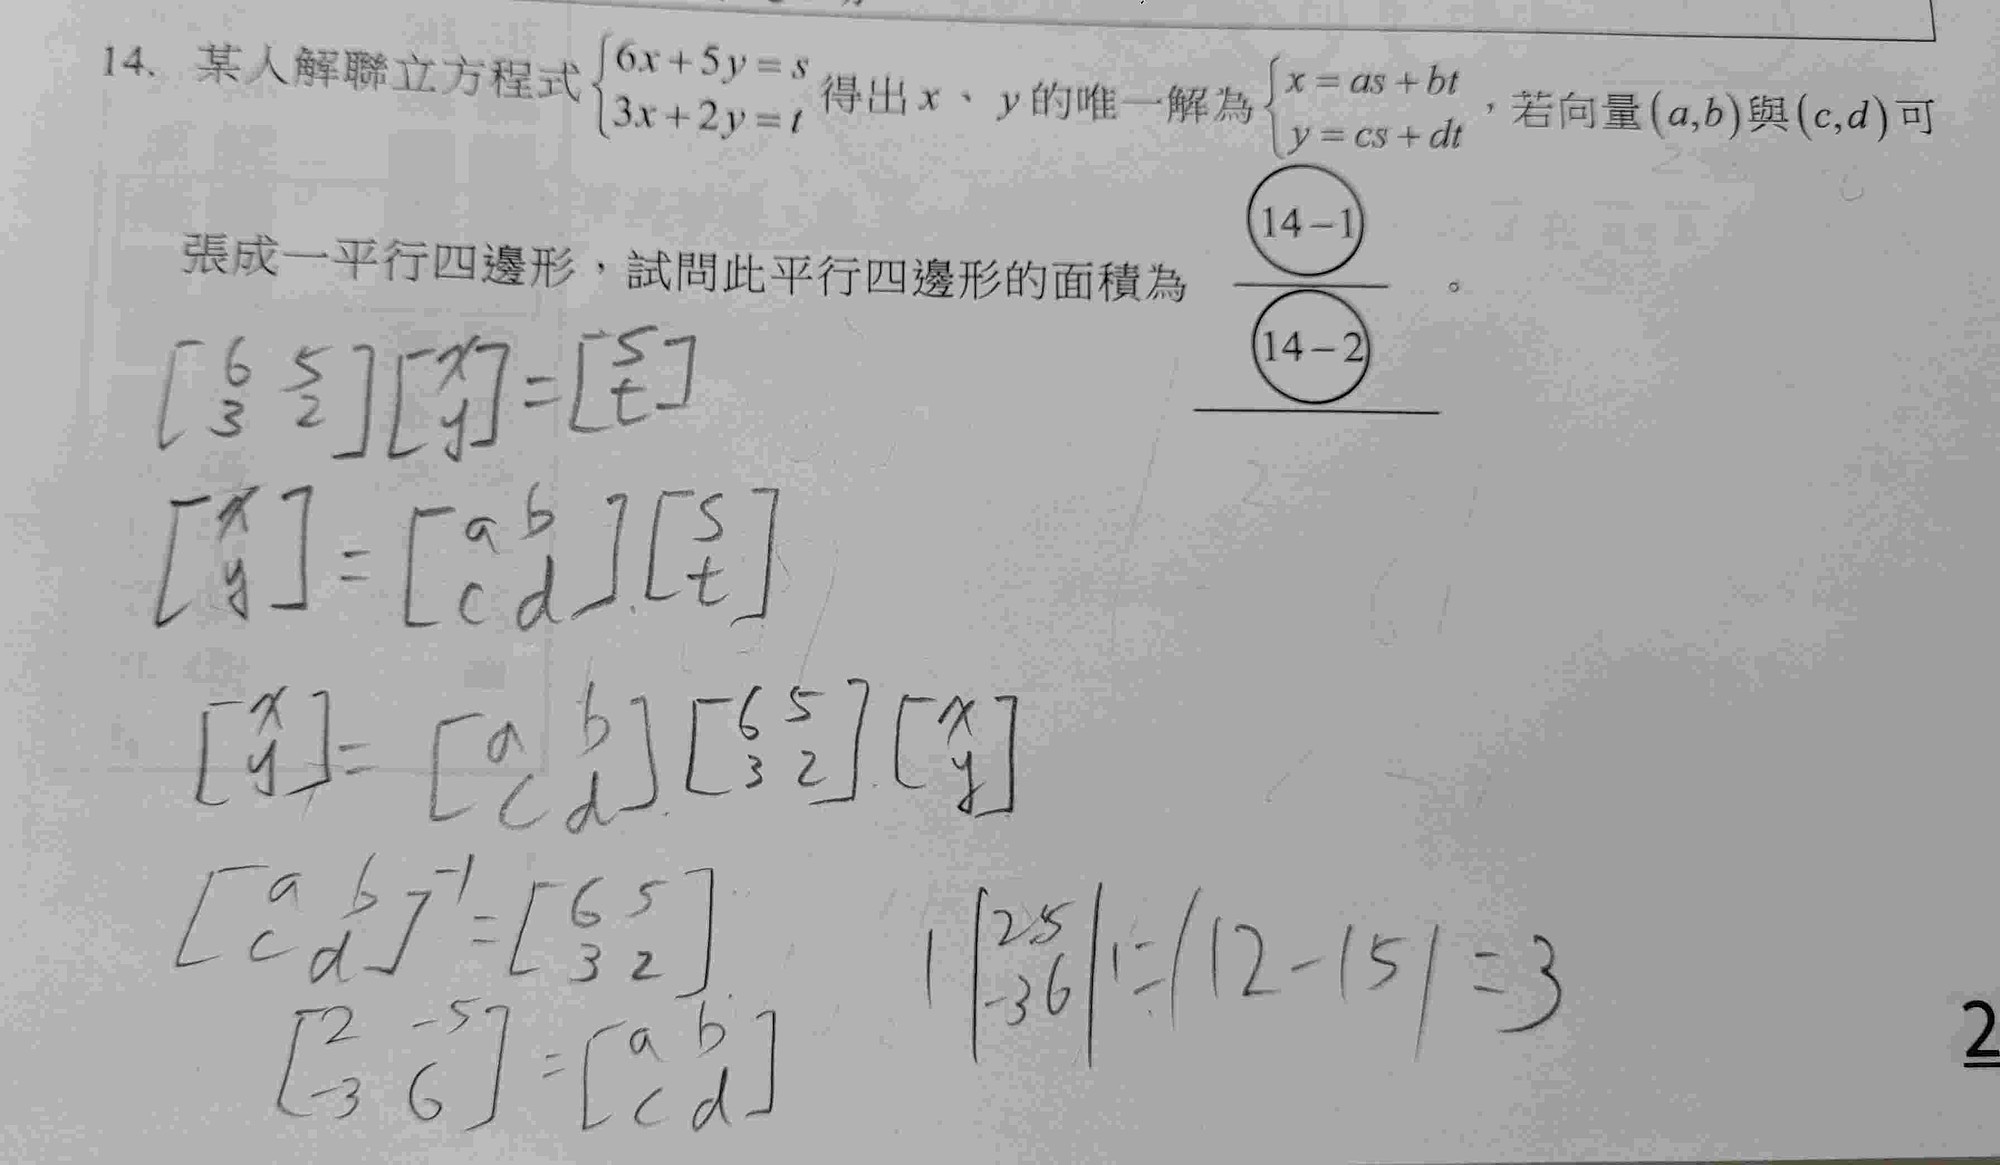 14. 某人解聯立方程式{6x+5y=s 3x+2y=t 得出x、y的唯一解為{x=as+bt y=cs+dt，若向量(a,b)與(c,d)可
張成一平行四邊形，試問此平行四邊形的面積為 (14-1)/(14-2)。
[6 5; 3 2][x; y]=[s; t]
[x; y]=[a b; c d].[s; t]
[x; y]=[a b; c d].[6 5; 3 2].[x; y]
[a b; c d]^-1=[6 5; 3 2]
[2 -5; -3 6]=[a b; c d]
||2 -5; -3 6||=|12-15|=3
2